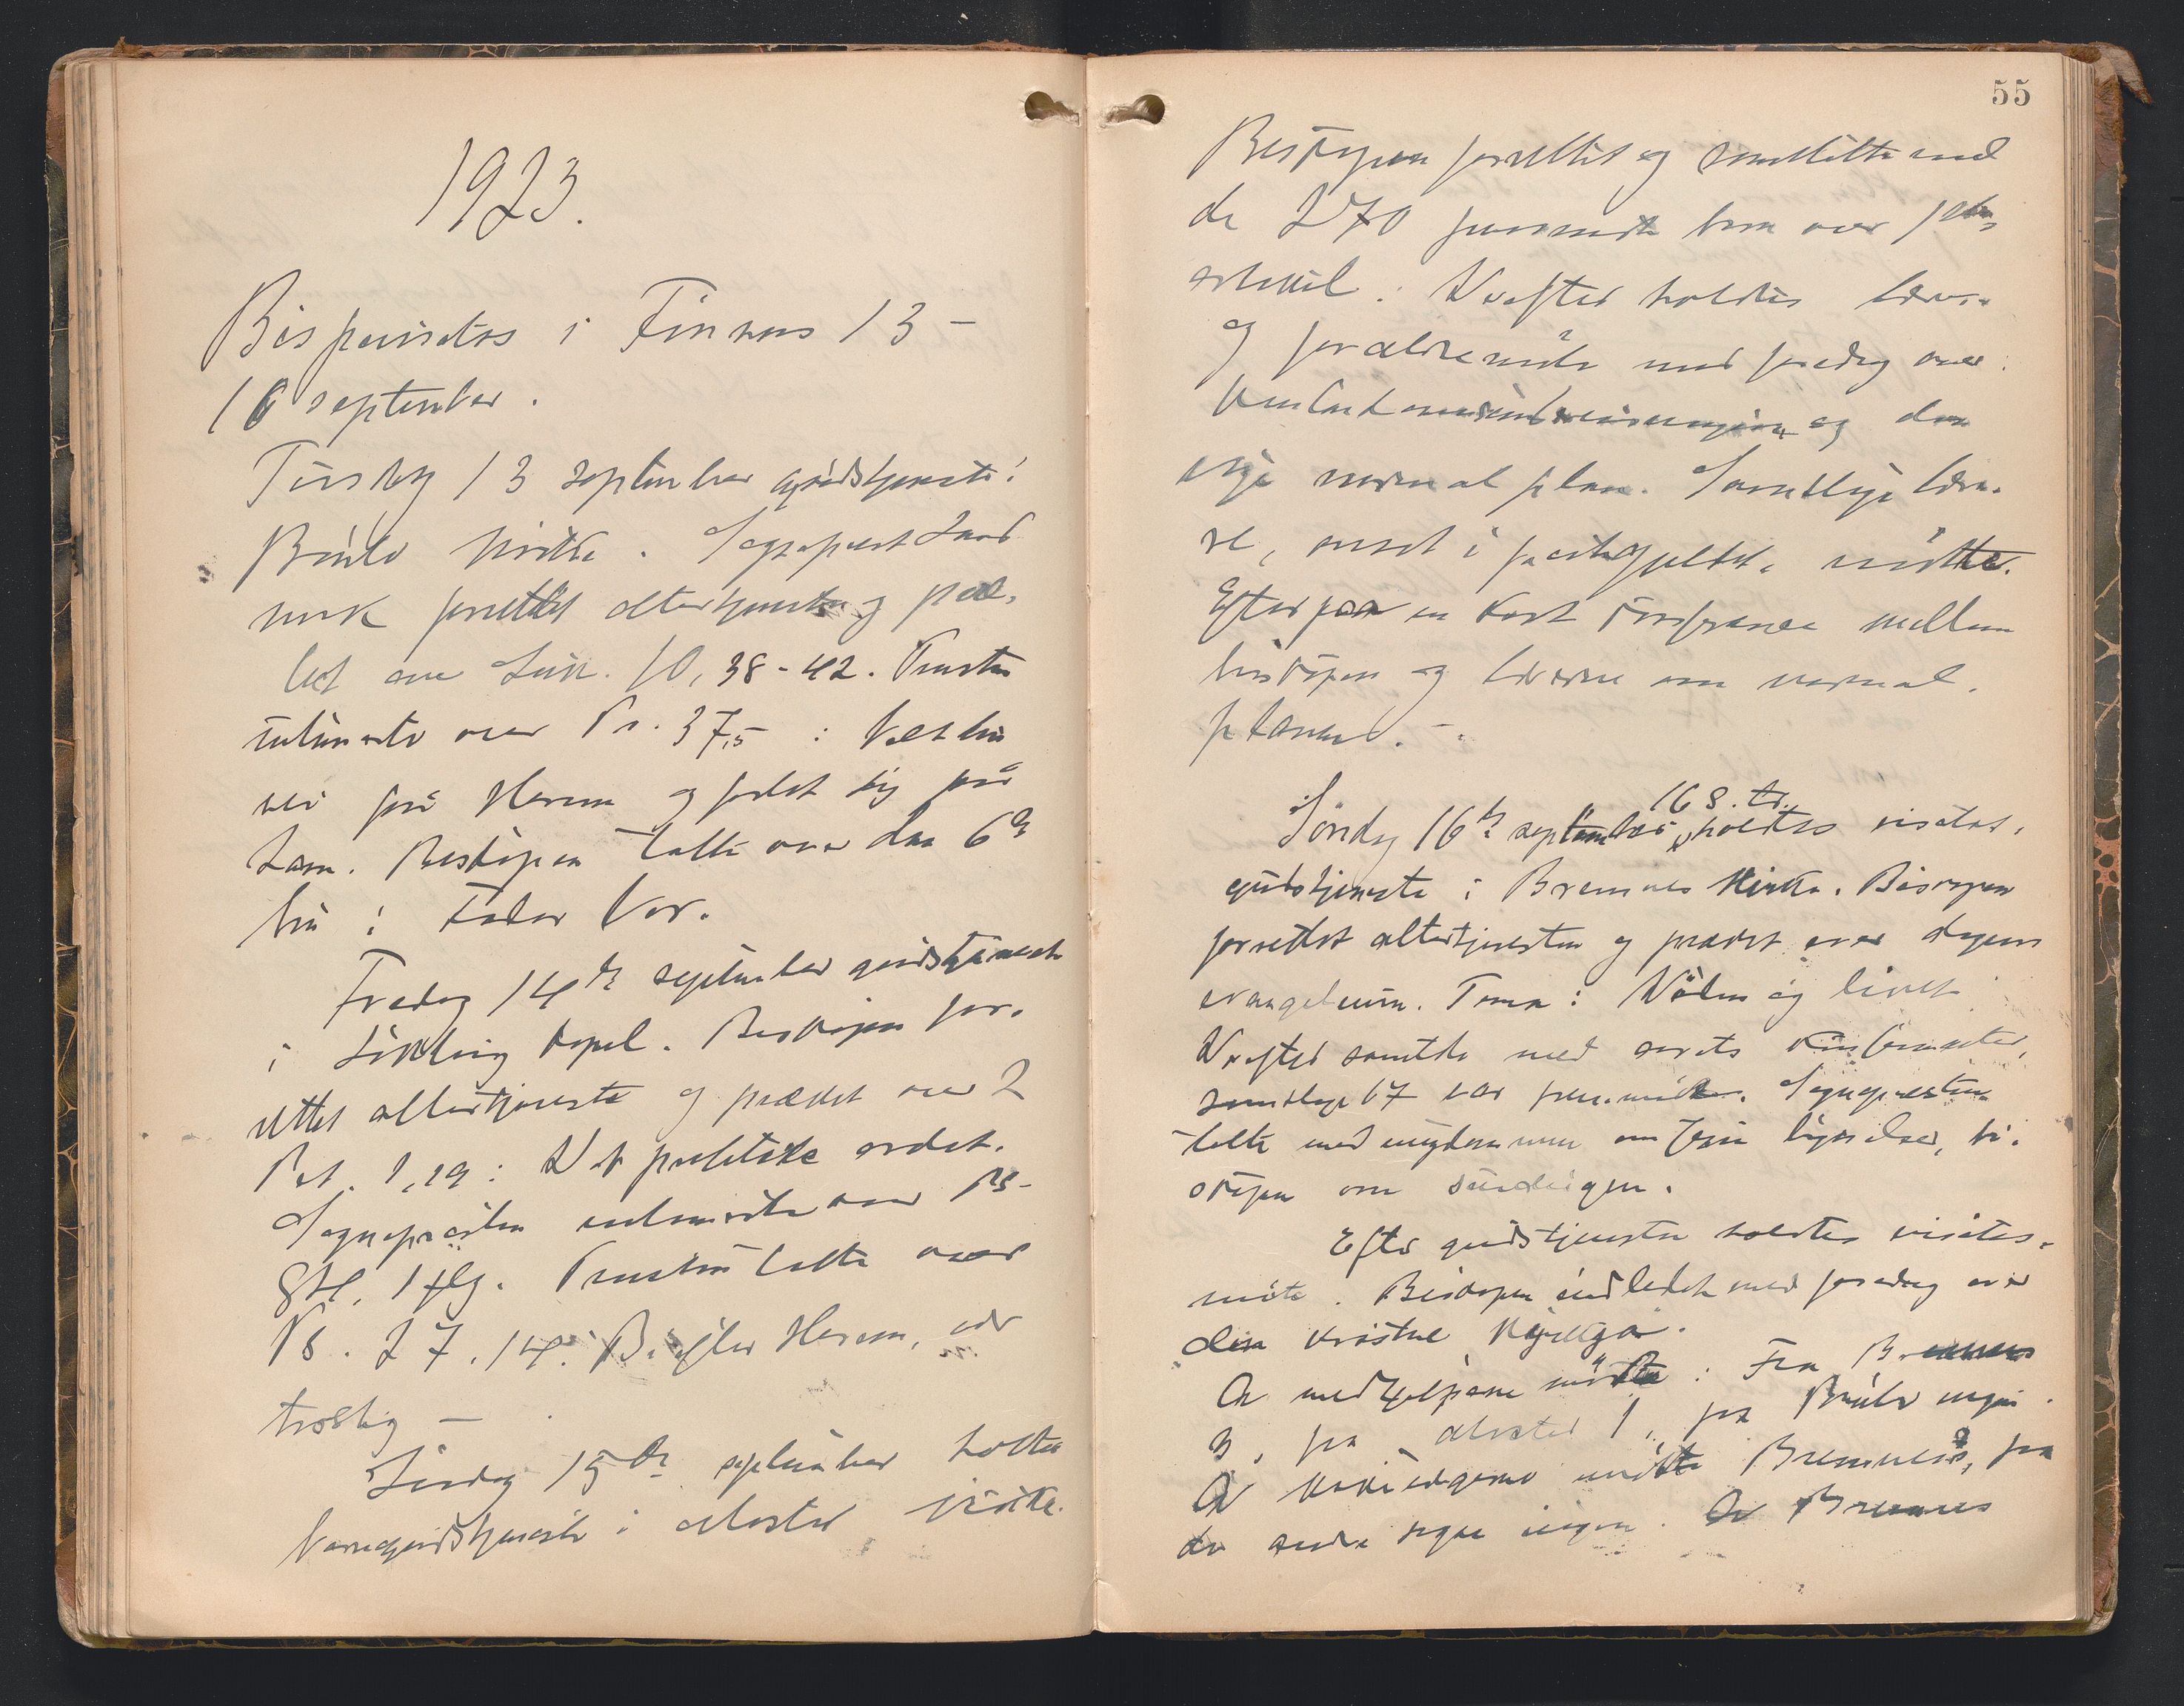 1923.
Bispevisitas i Finnaas 13 -
16 september.
Torsdag 13 september gudstjeneste i
Bömlo kirke. Sogneprest Land
mark forrettet altertjeneste og præ-
ket over Luk. 10, 38-42. Prosten
intimerte over Ps. 37,5: Vælt din
vei på Herren og forlat dig på
ham. Biskopen talte over den 6te
bön i Fader Vor.
Fredag 14de september gudstjeneste
i Lykling kapel. Biskopen for-
rettet altertjeneste og prækket over 2
Pet. 1,19: Det profetiske ordet.
Sognepresten intimerte over Ps.
84, 1 flg. Prosten talte over
Ps. 27, 14: Bi efter Herren, vær
trøstig —
Lördag 15de september holdtes
barnegudstjeneste i Moster kirke.
55
Biskopen forrettet og samtalte med
de 270 fremmötte barn over 1ste
artikel. Derefter holdtes lærer-
og forældremöte med foredrag over
konfirmasjonsundervisningen og den
nye normalplan. Samtlige lære-
re, ansat i prestegjeldet, mötte.
Efterpaa en kort konferanse mellem
biskopen og lærerne om normal-
planen. -
Söndag 16de september 16 S. e. tr. holdtes visitas-
gudstjeneste i Bremnes kirke. Biskopen
forrettet altertjenesten og præket over dagens
evangelium. Tema: Döden og livet
Derefter samtale med årets konfirmanter,
samtlige 67 var fremmötte. Sognepresten
talte med ungdommen om Jesu lignelser, bi-
skopen om
Efter gudstjenesten holdtes visitas-
möte. Biskopen indledet med foredrag over
den kristne
Av medhjelperne mötte: Fra Bremnes
3, fra Moster 1, fra Bömlo ingen.
Av mötte Bremnes, fra
de andre sogne ingen. Av Bremnes